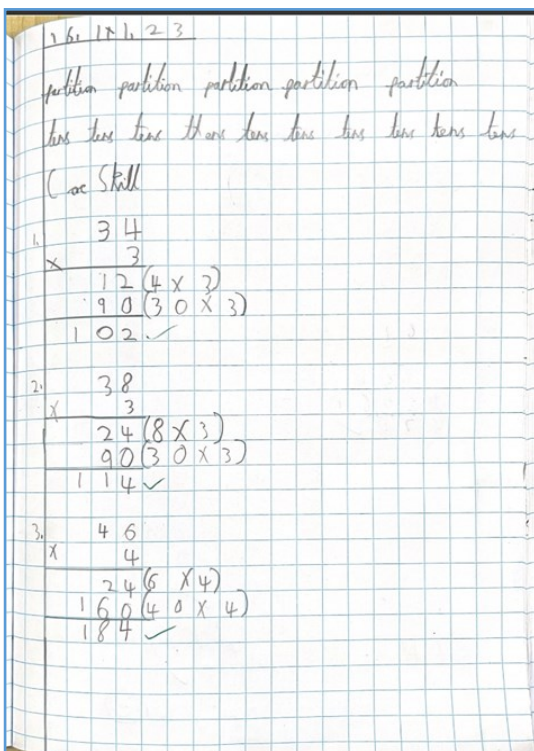 16. 11. 23
partition partition partition partition partition
tens tens tens thens tens tens tens tens tens tens
Core Skill
1. 34
x 3
12 (4 x 3)
90 (30 x 3)
102 ✓
2. 38
x 3
24 (8 x 3)
90 (30 x 3)
114 ✓
3. 46
x 4
24 (6 x 4)
160 (40 x 4)
184 ✓